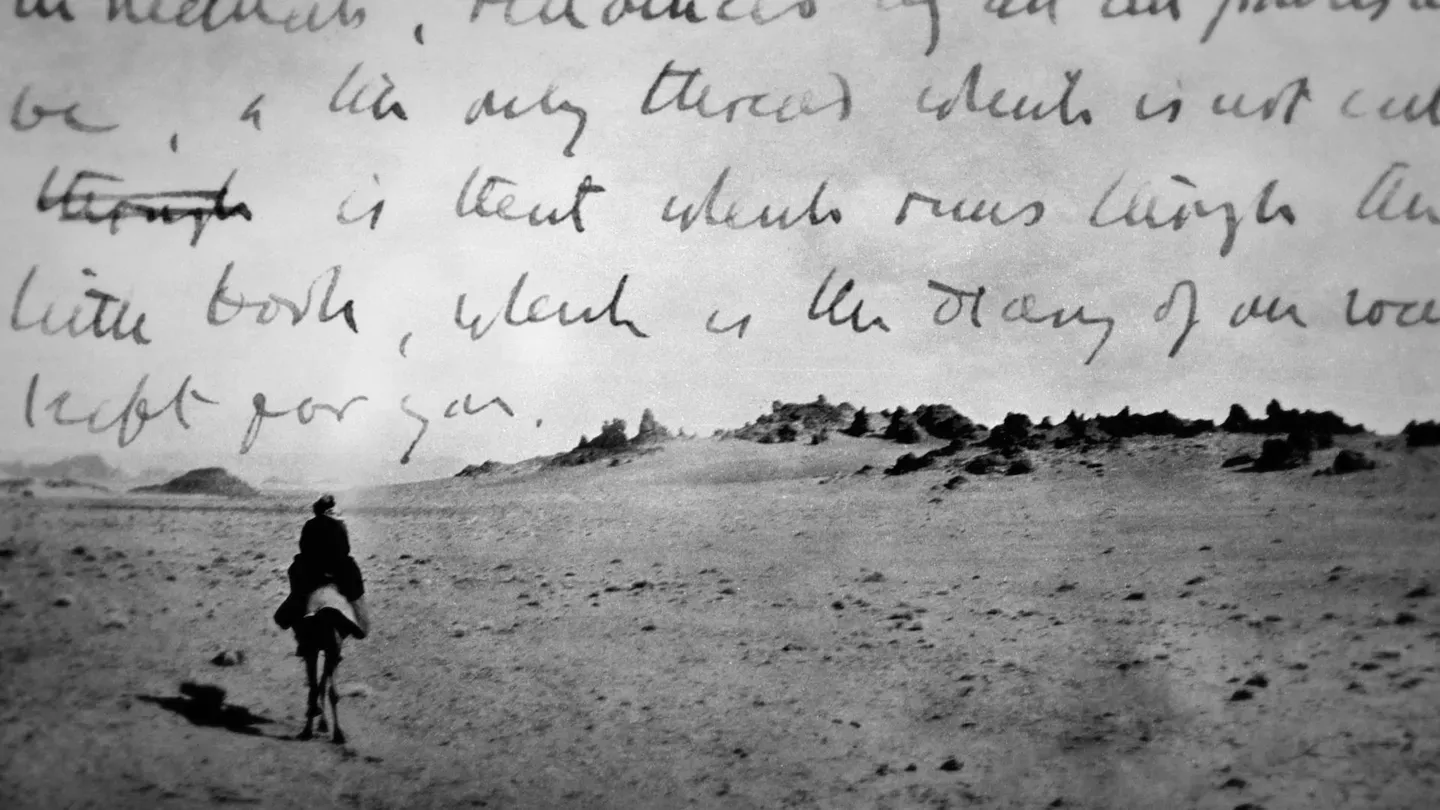 be, & the only thread which is not cut
through is that which runs through this
little book, which is the diary of my way
kept for you.